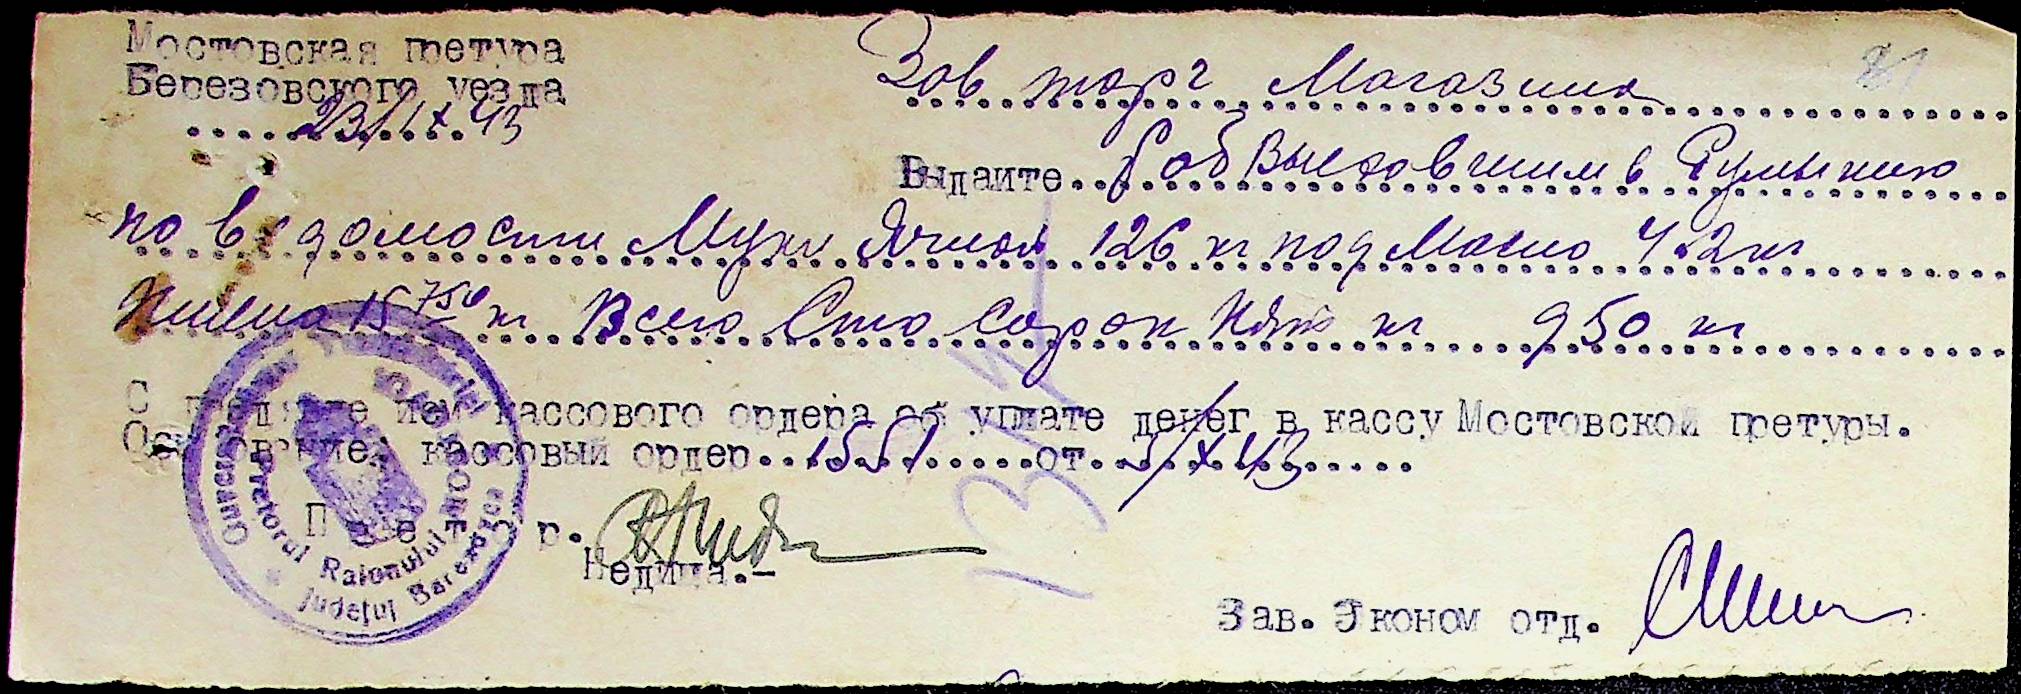 Мостовская претура
Березовского уезда
23/IX 43
81
Зав торг Магазина
Выдайте Раб Выехавшим в Румынию
по ведомости Муки Ячной 126 кг под Масло 4.2 кг
Пшена 15 750 кг Всего Сто сорок Пять кг 950 кг
С кассового ордера об уплате денег в кассу Мостовской претуры.
Основание: кассовый ордер 1551 от 5/X 43
Претор.
Недица.-
Зав. Эконом отд.
Pretorul Raionului
Județul Berezovca